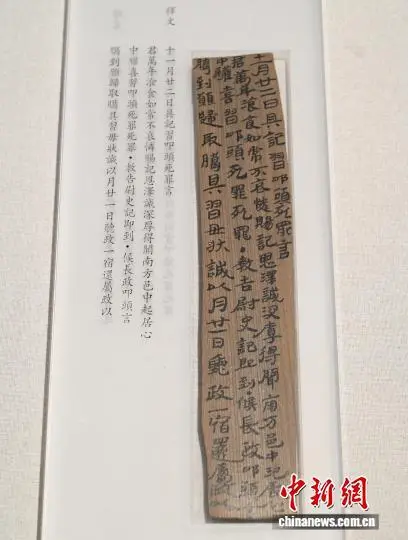 十一月廿二日具記習叩頭死罪言
君萬年湌食如常不哀憐賜記恩澤誠深厚得聞南方邑中起居心
中驩喜習叩頭死罪死罪·敖告尉史記即到·候長政叩頭言
臈到願歸取臈具習毋狀誠以月廿一日聽政一宿還屬政以
釋文
十一月廿二日具記習叩頭死罪言
君萬年湌食如常不哀憐賜記恩澤誠深厚得聞南方邑中起居心
中驩喜習叩頭死罪死罪·敖告尉史記即到·候長政叩頭言
臈到願歸取臈具習毋狀誠以月廿一日聽政一宿還屬政以
中新網
chinanews.com.cn